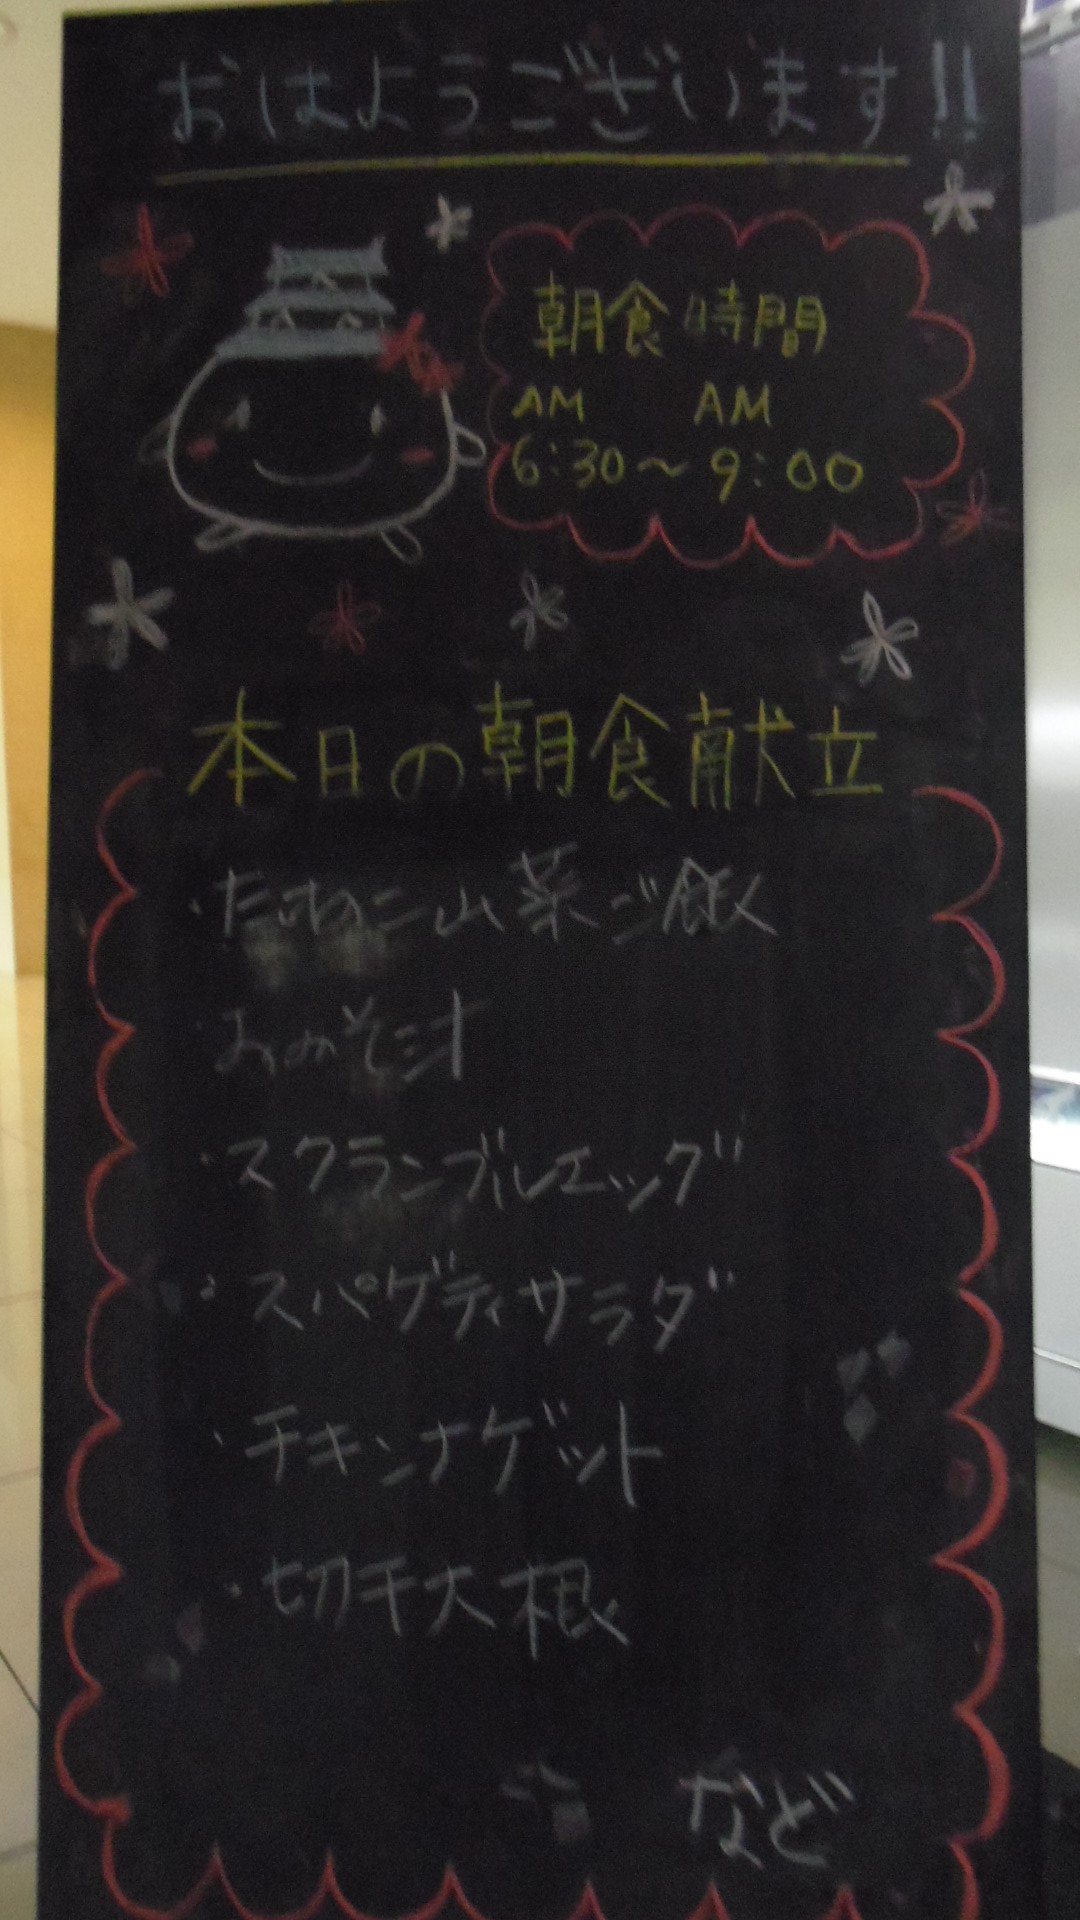 おはようございます!!
朝食時間
AM AM
6:30～9:00
本日の朝食献立
・たけのこ山菜ご飯
・おみそ汁
・スクランブルエッグ
・スパゲティサラダ
・チキンナゲット
・切干大根
など